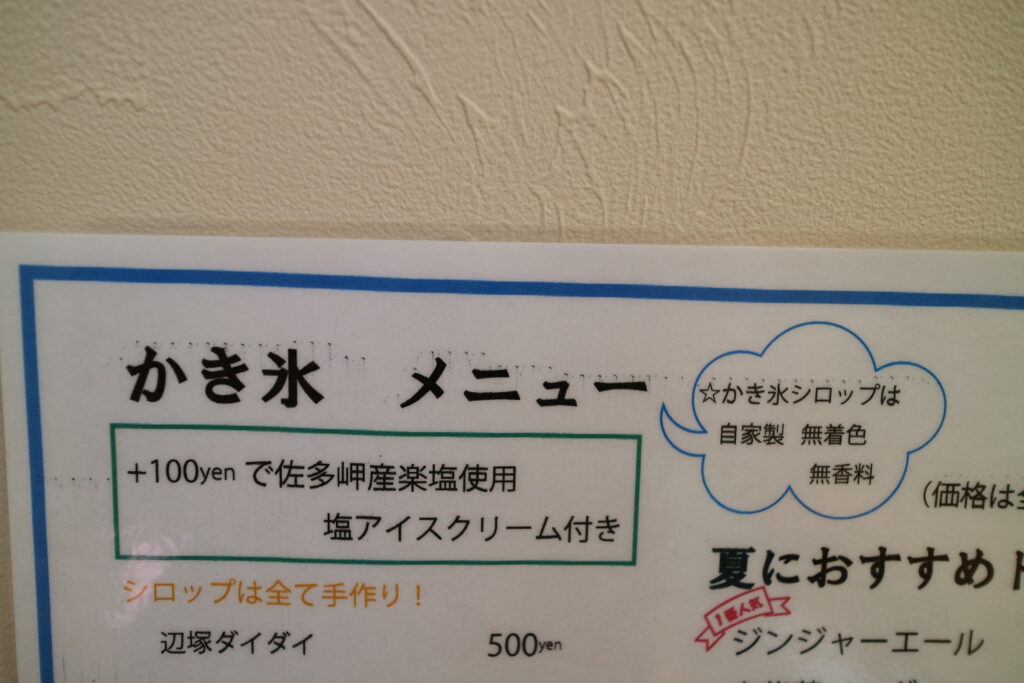 かき氷 メニュー
☆かき氷シロップは
自家製 無着色
無香料
+100yen で佐多岬産楽塩使用
塩アイスクリーム付き
(価格は
シロップは全て手作り!
辺塚ダイダイ 500yen
夏におすすめ
1番人気
ジンジャーエール